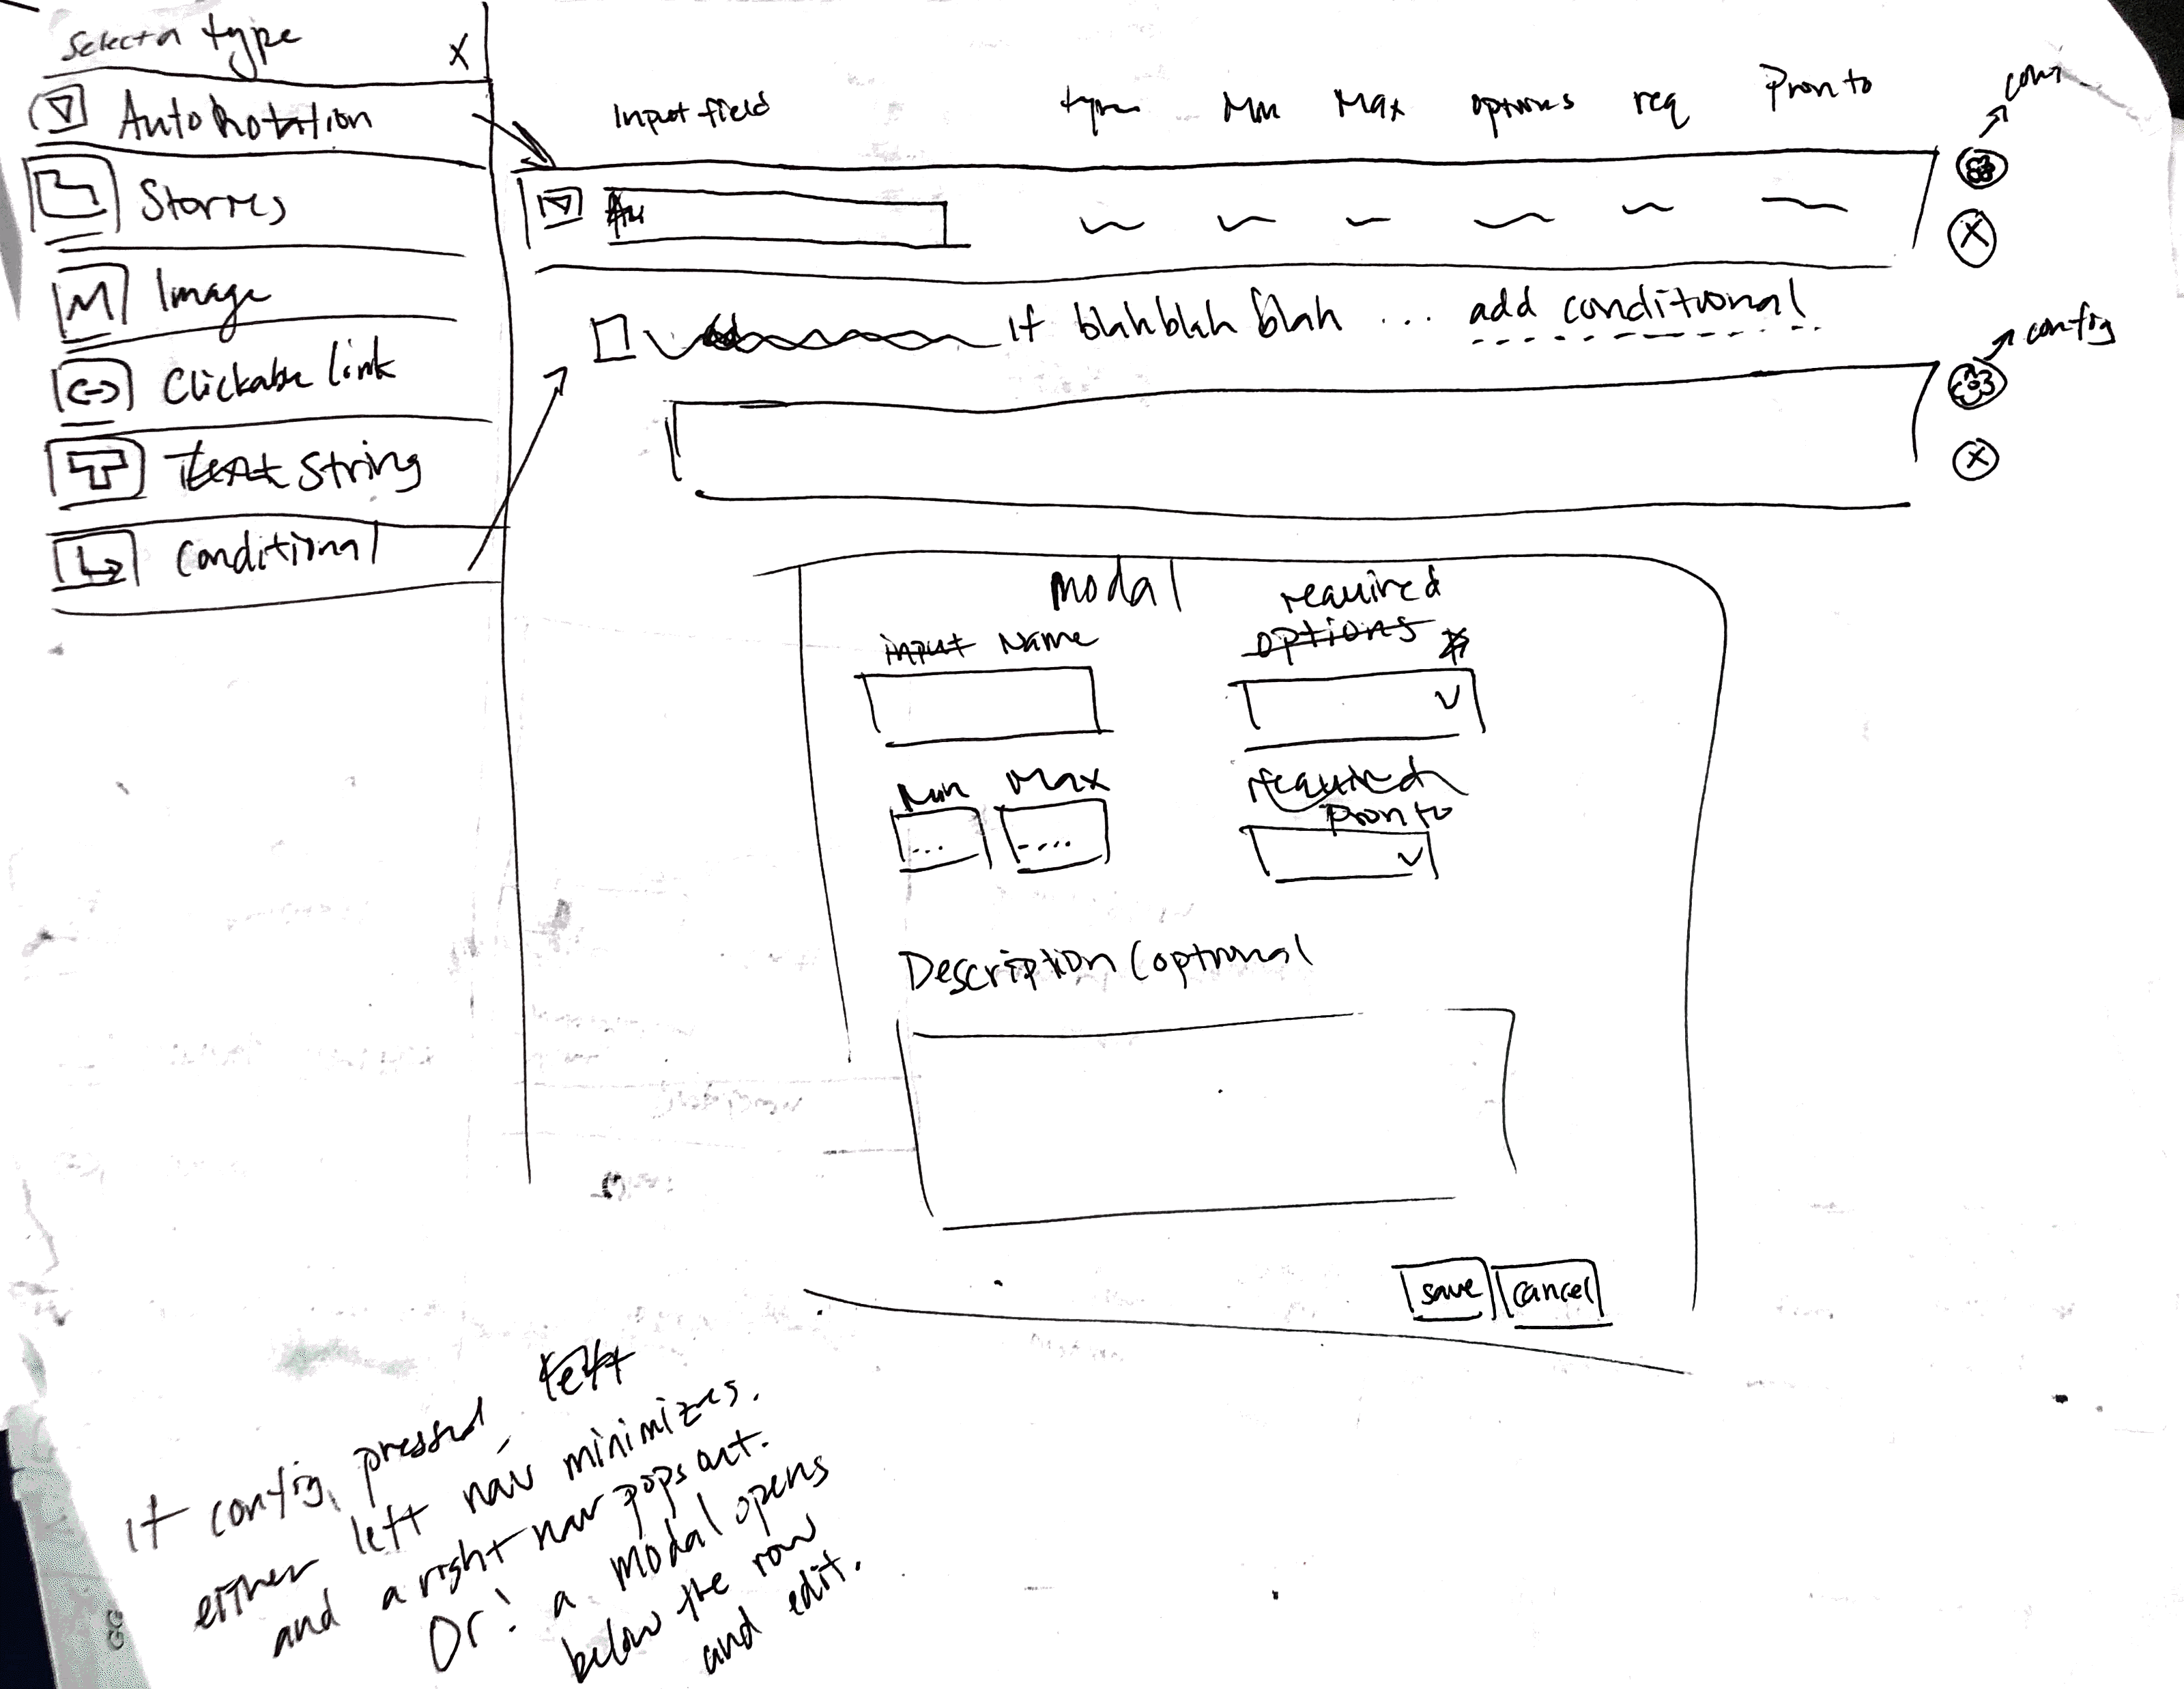 Select a type X
Auto Rotation
Stories
Image
Clickable link
T Text String
Conditional
Input field type Min Max options req Pronto
Au
X
If blah blah blah ... add conditional
config
X
modal
input Name required
options *
Min Max required
Pronto
... ....
Description (optional
save cancel
left
if config pressed,
either left nav minimizes.
and a right nav pops out.
Or: a modal opens
below the row
and edit.